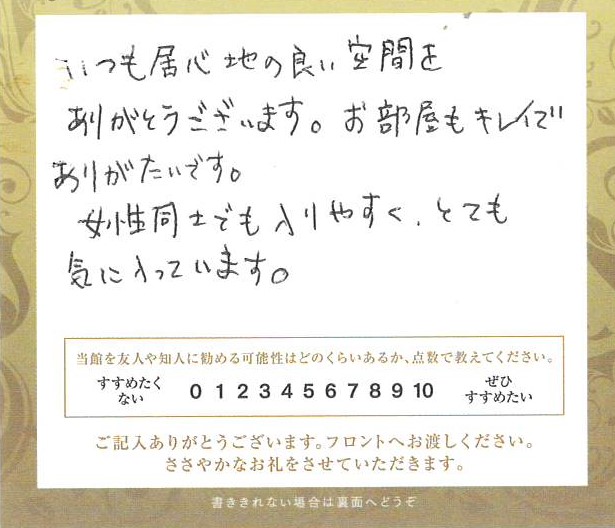 いつも居心地の良い空間を
ありがとうございます。お部屋もキレイで
ありがたいです。
女性同士でも入りやすく、とても
気に入っています。
当館を友人や知人に勧める可能性はどのくらいあるか、点数で教えてください。
すすめたく
ない
0 1 2 3 4 5 6 7 8 9 10
ぜひ
すすめたい
ご記入ありがとうございます。フロントへお渡しください。
ささやかなお礼をさせていただきます。
書ききれない場合は裏面へどうぞ